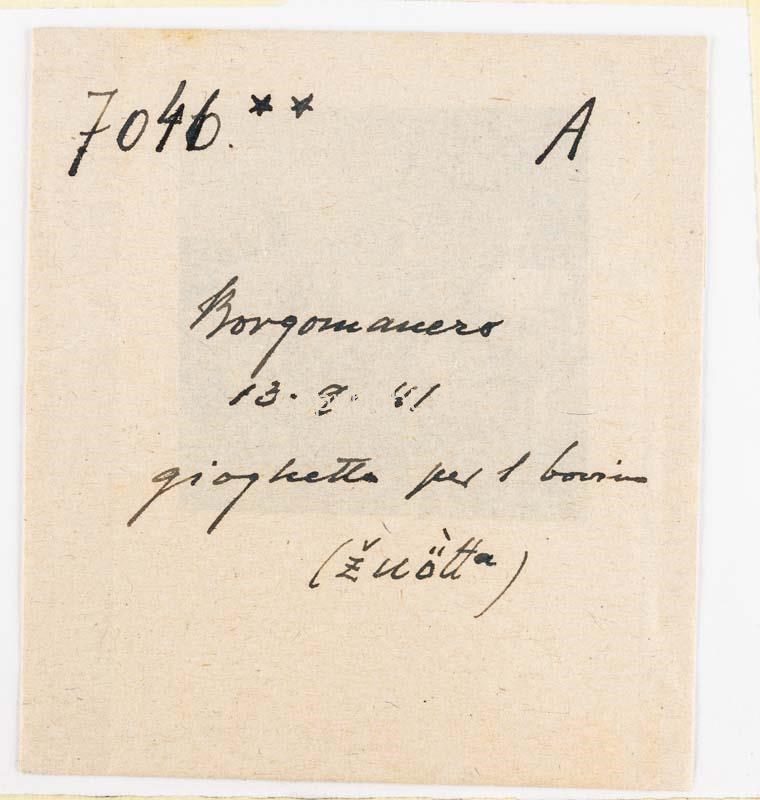 7046.** A
Borgomanero
13. 9. 41
gioghetto per 1 bovino
(žuö̀tta)